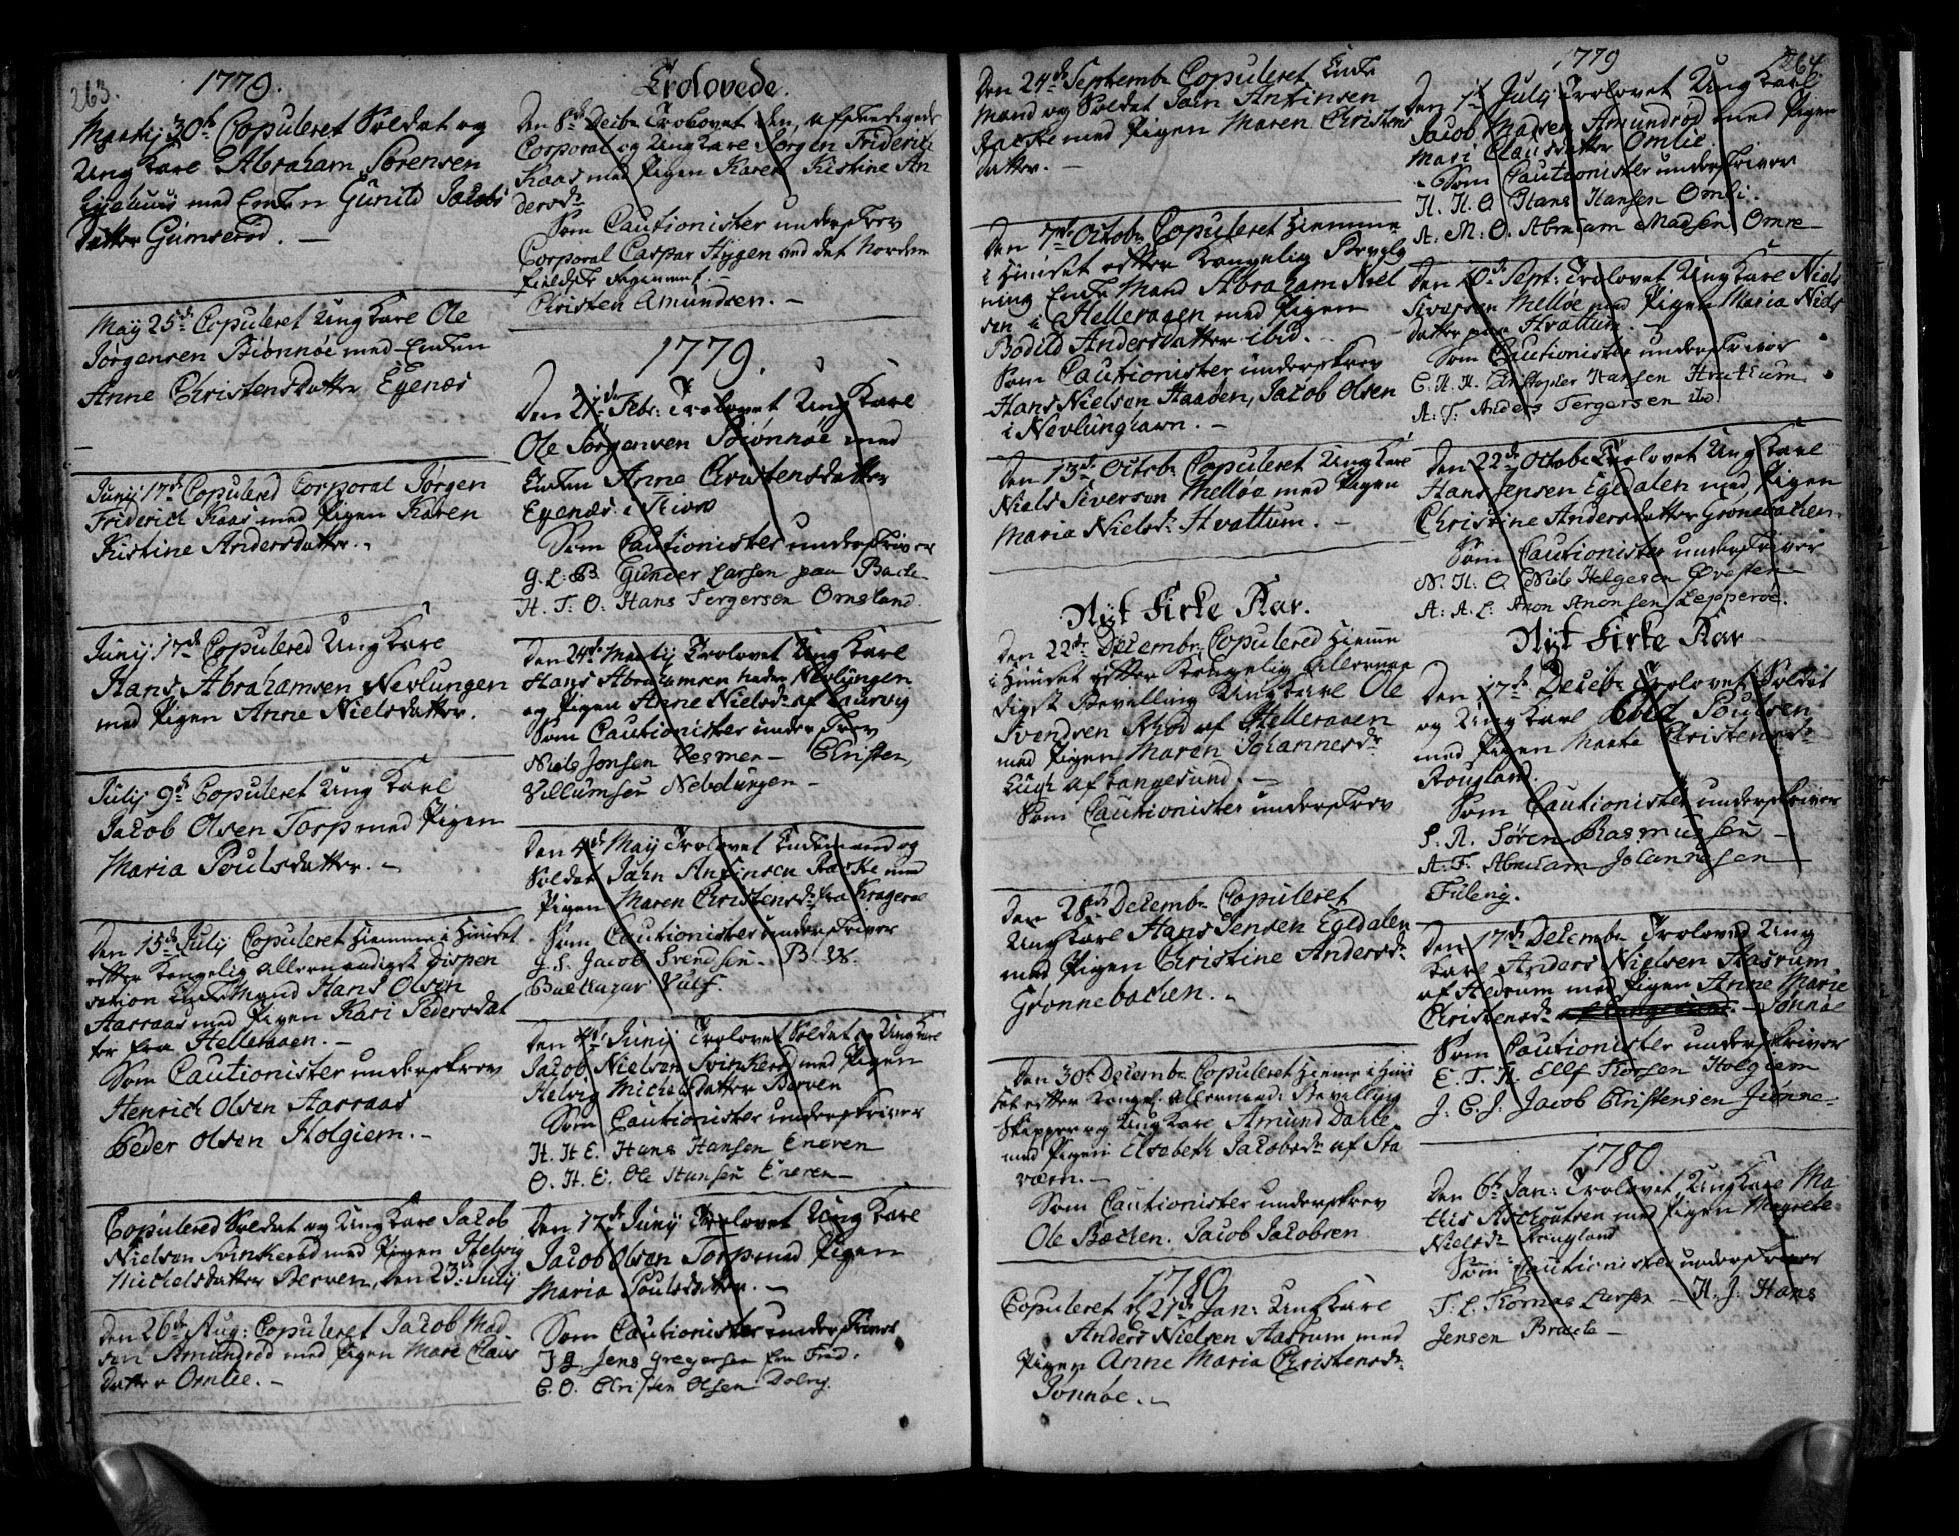 263.
1779.
Martij 30te Copuleret Soldat og
Ung Karl Abraham Sørensen
med Enken Gunild Jacobs
datter Gumserød. —
May 25de Copuleret Ung Karl Ole
Jørgensen Biønnøe med Enken
Anne Christensdatter Eyenæs
Junij 17de Copulered Corporal Jørgen
Friderich Kaas med Pigen Karen
Kistine Andersdatter. —
Junij 17de Copulered Ung Karl
Hans Abrahamsen Nevlungen
med Pigen Anne Nielsdatter.
Julij 9de Copuleret Ung Karl
Jacob Olsen Torp med Pigen
Maria Poulsdatter. —
Den 15de Julij Copuleret hiemme i Huuset
efter Kongelig allernaadigst dispen
sation Enke Mand Hans Olsen
Aarraas med Pigen Kari Pedersdat
ter fra Helleraaen. —
Som Cautionister underskrev
Henrich Olsen Aarraas
Peder Olsen Holgiem. —
Copulered Soldat og Ung Karl Jacob
Nielsen Svinkerød med Pigen Helvig
Michelsdatter Berven, den 23de Julij
Den 26de Aug: Copuleret Jacob Mad
sen Amundrød med Pigen Mari Claus
datter Omlie. —
Trolovede.
Den 8de Decibr Trolovet den afskedigede
Corporal og Ung Karl Jørgen Friderich
Kaas med Pigen Karen Kistine An
dersdr
Som Cautionister underskrev
Corporal Caspar Stygen ved det Norden
fieldske Regiment.
Christen Amundsen. —
1779.
Den 21de Febr: Trolovet Ung Karl
Ole Jørgensen Biønnøe med
Enken Anne Christensdatter
Eyenæs i
Som Cautionister underskriver
G. L. B. Gunder Larsen paa Bacle
H. T. O. Hans Tergersen Omsland.
Den 24de Martij Trolovet Ung Karl
Hans Abrahamsen Nevlungen
og Pigen Anne Nielsdr af Laurvig
Som Cautionister underskrev
Niels Jonsen — Christen
Villumsen Nevlungen —
Den 4de May Trolovet Enkemand og
Soldat Jahn Antinsen Raske med
Pigen Maren Christensdr fra Krageröe
Som Cautionister underskriver
J. S. Jacob Svendsen. B. W.
Baltazar Vulf.
Den 4de Junij Trolovet Soldat og Ung Karl
Jacob Nielsen Svinkerød med Pigen
Helvig Michelsdatter Berven
Som Cautionister underskriver
H. H. E. Hans Hansen Eneren
O. H. E. Ole Hansen Eneren —
Den 17de Junij Trolovet Ung Karl
Jacob Olsen Torp med Pigen
Maria Poulsdatter. —
Som Cautionister underskriver
J. G. Jens Gregersen fra Fred.
C. O. Christen Olsen Dolvig.
Den 24de Septembr Copuleret Enke
Mand og Soldat Jahn Antinsen
Raske med Pigen Maren Christens
datter. —
Den 7de Octobr Copuleret hiemme
i Huuset efter Kongelig Bevilg
ning Enke Mand Abraham Niel
sen i Helleraaen med Pigen
Bodild Andersdatter ibid. —
Som Cautionister underskrev
Hans Nielsen Haaden, Jacob Olsen
i Nevlunghavn. —
Den 13de Octobr Copuleret Ung Karl
Niels Siversen Melløe med Pigen
Maria Nielsdr Hvattum. —
Nyt Kirke Aar.
Den 22de Decembr Copulered hiemme
i Huuset efter Kongelig allernaa
digst Bevilling Ung Karl Ole
Svendsen Rød af Helleraaen
med Pigen Maren Johannesdr
af Langesund. —
Som Cautionister underskrev
Den 28de Decembr Copuleret
Ung Karl Hans Jensen Egedalen
med Pigen Christine Andersdr
Grønnebachen. —
Den 30de Decembr Copuleret hieme i Huu
set efter Kongel. allernaad: Bevilling
Skipper og Ung Karl Amund Dahle
med Pigen Elsebeth Jacobsdr af Sta
værn. —
Som Cautionister underskrev
Ole Bachen. Jacob Jacobsen
1780
Copuleret d 27de Jan: Ung Karl
Anders Nielsen Aasrum med
Pigen Anne Maria Christensdr
Jonnøe. —
1779
264.
Den 1te Julij Trolovet Ung Karl
Jacob Madsen Amundrød med Pigen
Mari Clausdatter Omlie.
Som Cautionister underskriver
H. H. O. Hans Hansen Omli.
A. M. O. Abraham Madsen Omre
Den 10de Sept: Trolovet Ung Karl Niels
Siversen Melløe med Pigen Maria Niels
datter paa Hvattum. —
Som Cautionister underskriver
C. H. H. Christopher Hansen Hvattum
A. T. Anders Tergersen ibd.
Den 22de Octobr Trolovet Ung Karl
Hans Jensen Egedalen med Pigen
Christine Andersdatter Grønebachen.
Som Cautionister underskriver
N. H. O. Niels Helgesen Øvesten
A. A. L. Anon Anonsen Lepperøe.
Nyt Kirke Aar
Den 17de Decebr Trolovet Soldat
og Ung Karl Poulsen
med Pigen Marte Christensdr
Rougland.
Som Cautionister underskriver
S. R. Søren Rasmussen —
A. F. Abraham Johannesen
Fuleng.
Den 17de Decembr Trolovet Ung
Karl Anders Nielsen Aasrum
af Hedrum med Pigen Anne Marie
Christensdr Jonnøe
Som Cautionister underskriver
E. T. H. Ellf Torsen Holgiem
J. C. J. Jacob Christensen Jonnøe
1780
Den 6te Jan: Trolovet Ung Karl Ma
this Aschoutsen med Pigen Magrete
Nielsdr Rougland
Som Cautionister underskriver
T. L. Thomas Larsen — H. J. Hans
Jensen Bracle —